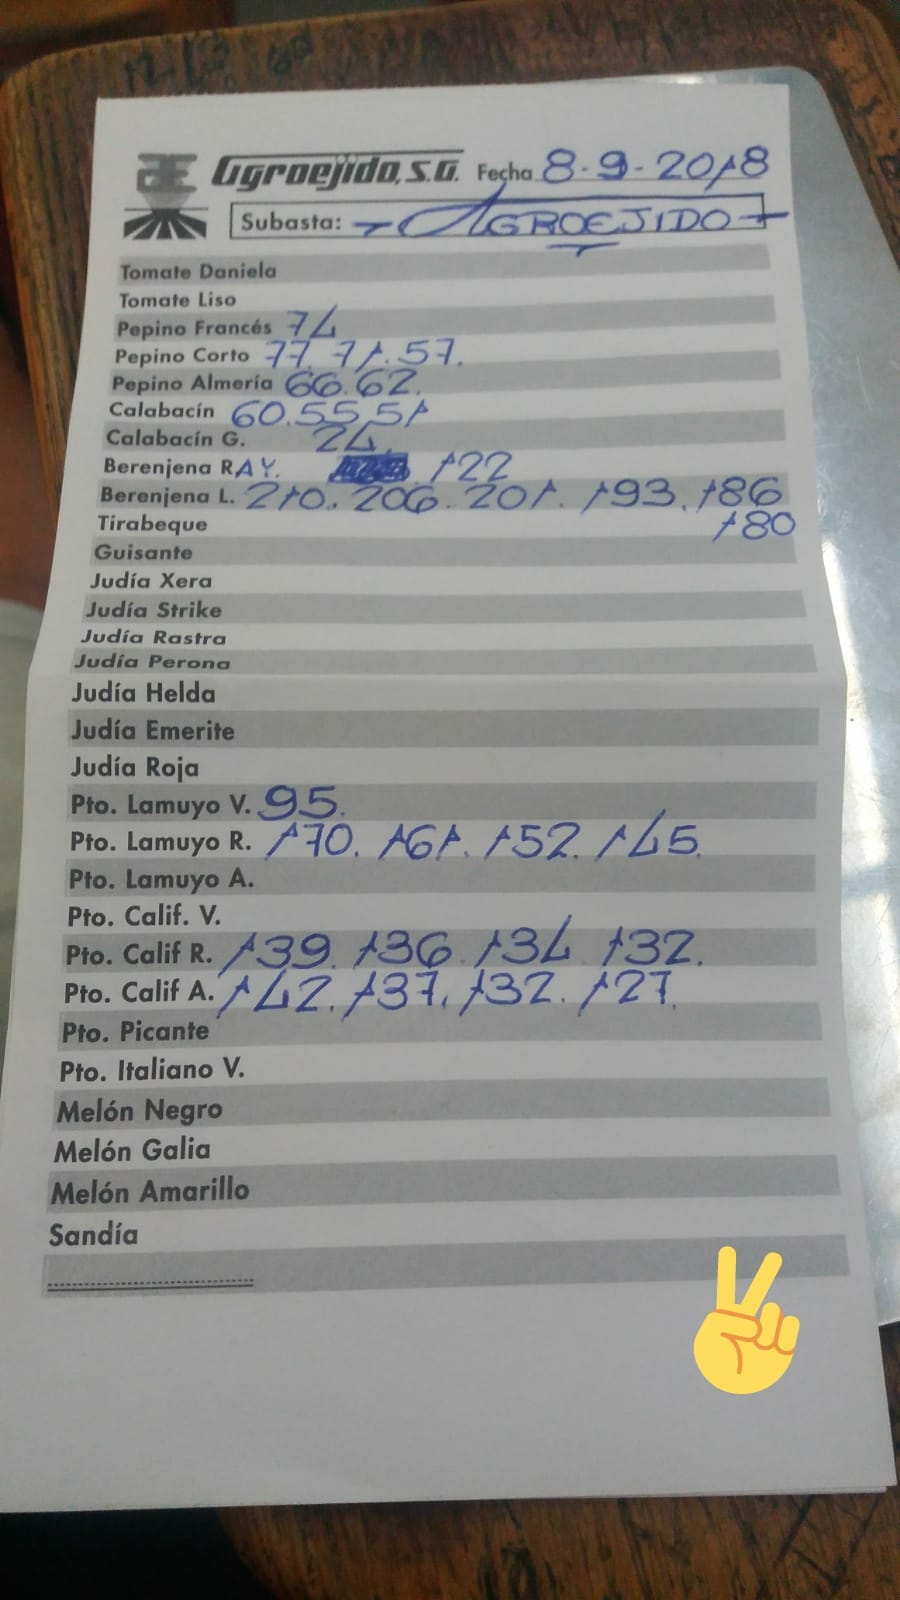 Agroejido, S.A. Fecha 8-9-2018
Subasta: AGROEJIDO
Tomate Daniela
Tomate Liso
Pepino Francés 74
Pepino Corto 77. 71. 57.
Pepino Almería 66. 62.
Calabacín 60. 55 51
Calabacín G. 24
Berenjena RAY. 122
Berenjena L. 210. 206. 201. 193. 186
Tirabeque 180
Guisante
Judía Xera
Judía Strike
Judía Rastra
Judía Perona
Judía Helda
Judía Emerite
Judía Roja
Pto. Lamuyo V. 95.
Pto. Lamuyo R. 170. 161. 152. 145.
Pto. Lamuyo A.
Pto. Calif. V.
Pto. Calif R. 139. 136. 134 132.
Pto. Calif A. 142. 137. 132. 127.
Pto. Picante
Pto. Italiano V.
Melón Negro
Melón Galia
Melón Amarillo
Sandía